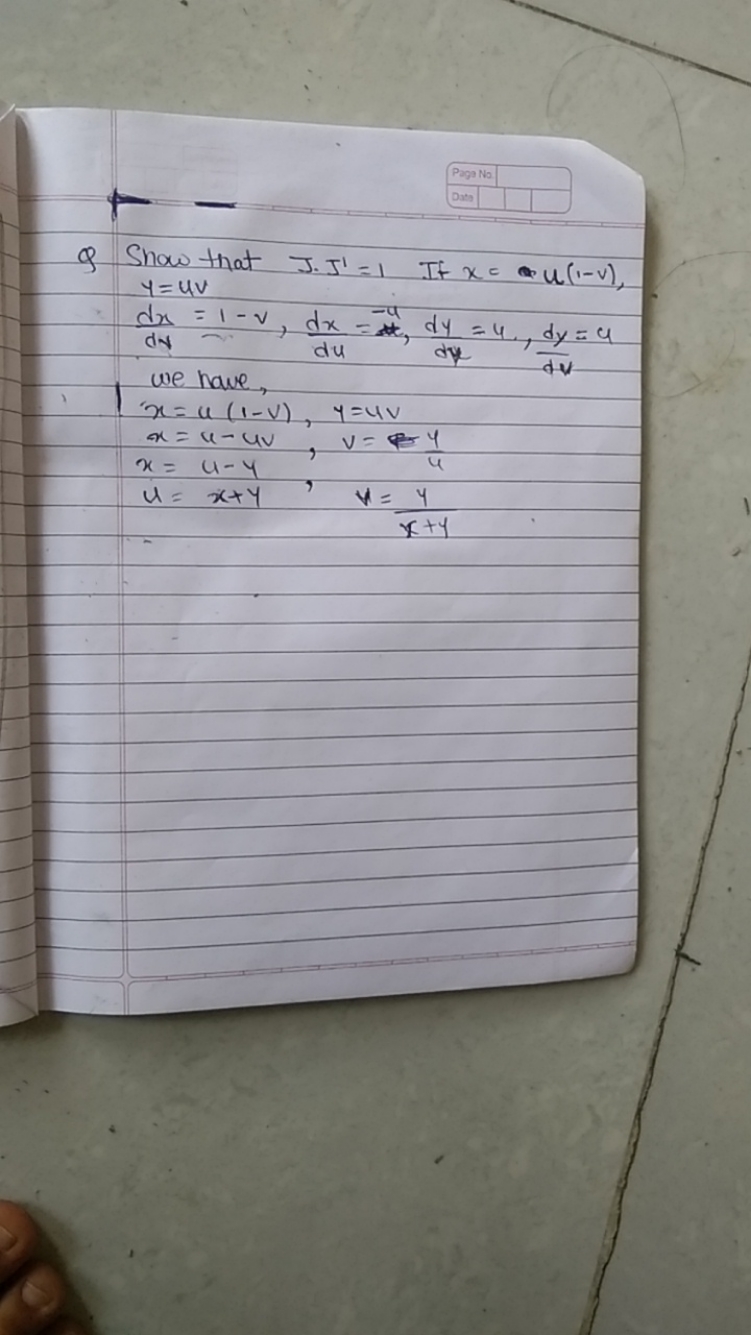 Page No.
Date
Q Show that J.J' = 1 If x = u(1-v),
y = uv
dx/dy = 1-v, dx/du = -u, dy/dy = u., dy/dv = u
we have,
x = u(1-v), y = uv
x = u-uv, v = y/u
x = u-y
u = x+y, v = y/x+y